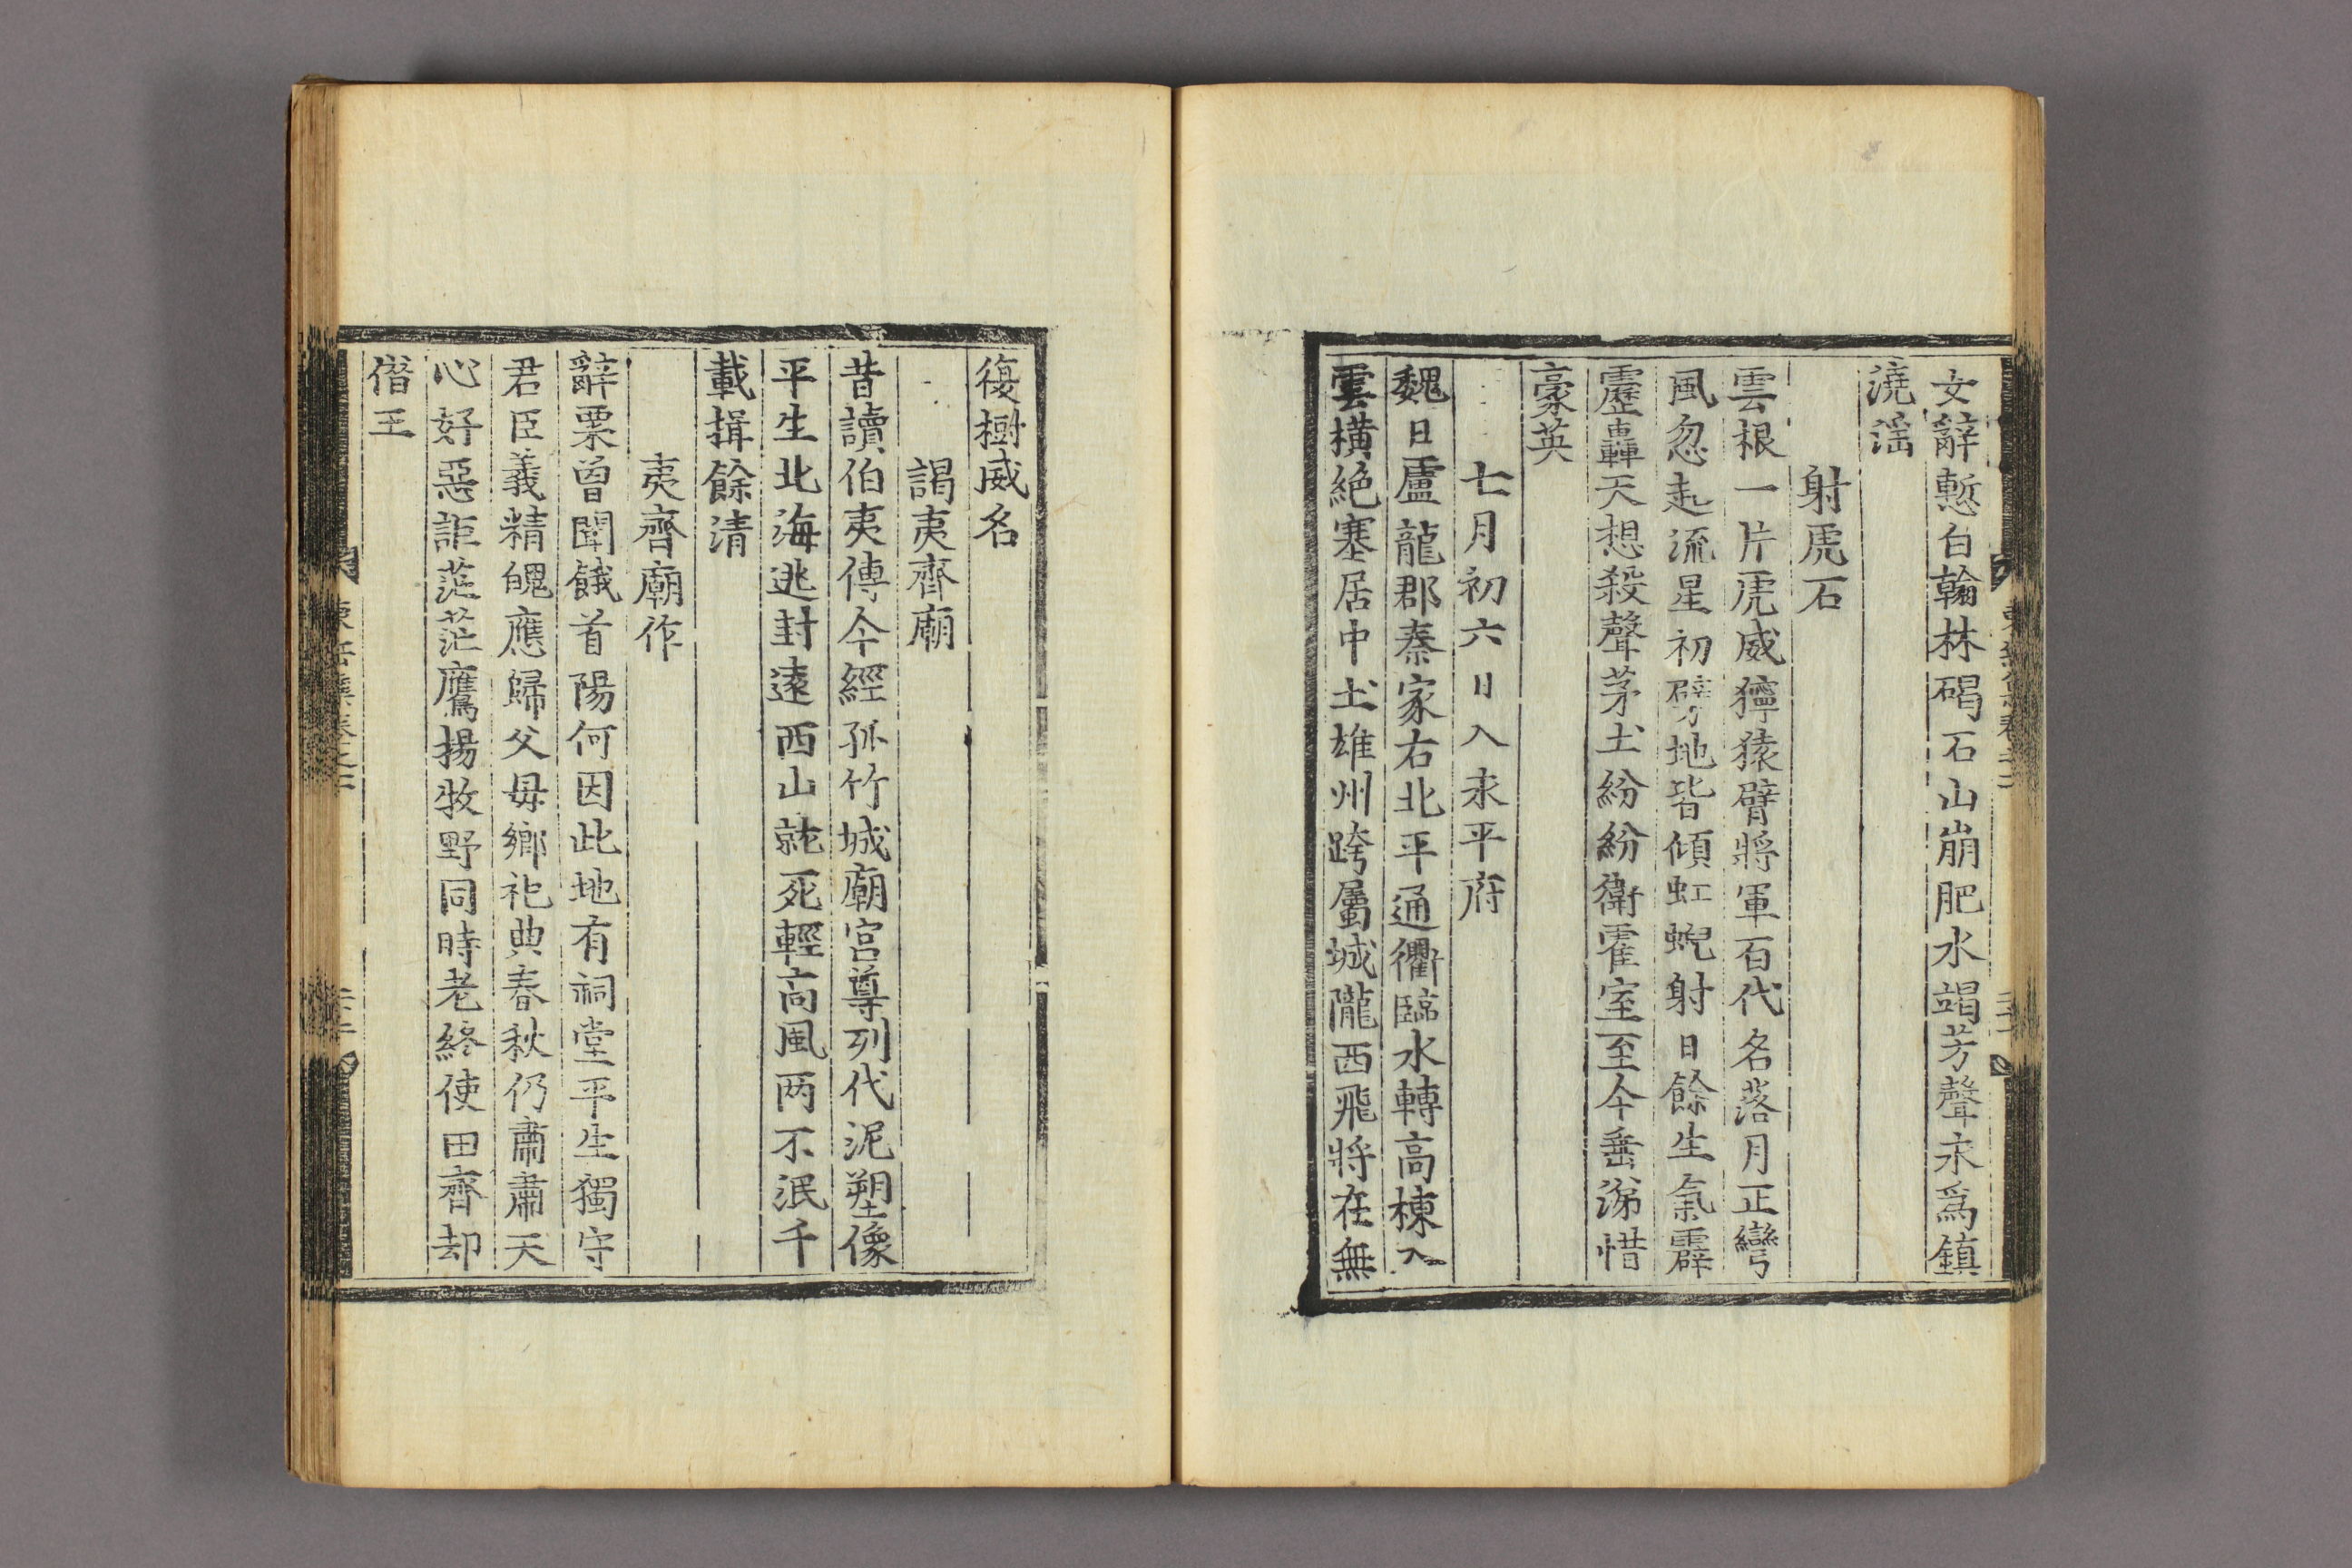 女辭慙白翰林碣石山崩肥水竭芳聲永爲鎭
澆滛
射虎石
雲根一片虎威獰猿臂將軍百代名落月正彎
風忽起流星初劈地皆傾虹蜺射日餘生氣霹
靂轟天想殺聲茅土紛紛衛霍室至今垂涕惜
豪英
七月初六日入永平府
魏日盧龍郡秦家右北平通衢臨水轉高棟入
雲橫絶塞居中土雄州跨屬城隴西飛將在無
復樹威名
謁夷齊廟
昔讀伯夷傳今經孤竹城廟宮尊列代泥塑像
平生北海逃封遠西山就死輕高風两不泯千
載揖餘清
夷齊廟作
辭粟曾聞餓首陽何因此地有祠堂平生獨守
君臣義精魄應歸父母鄉祀典春秋仍肅肅天
心好惡詎茫茫鷹揚牧野同時老終使田齊却
僭王